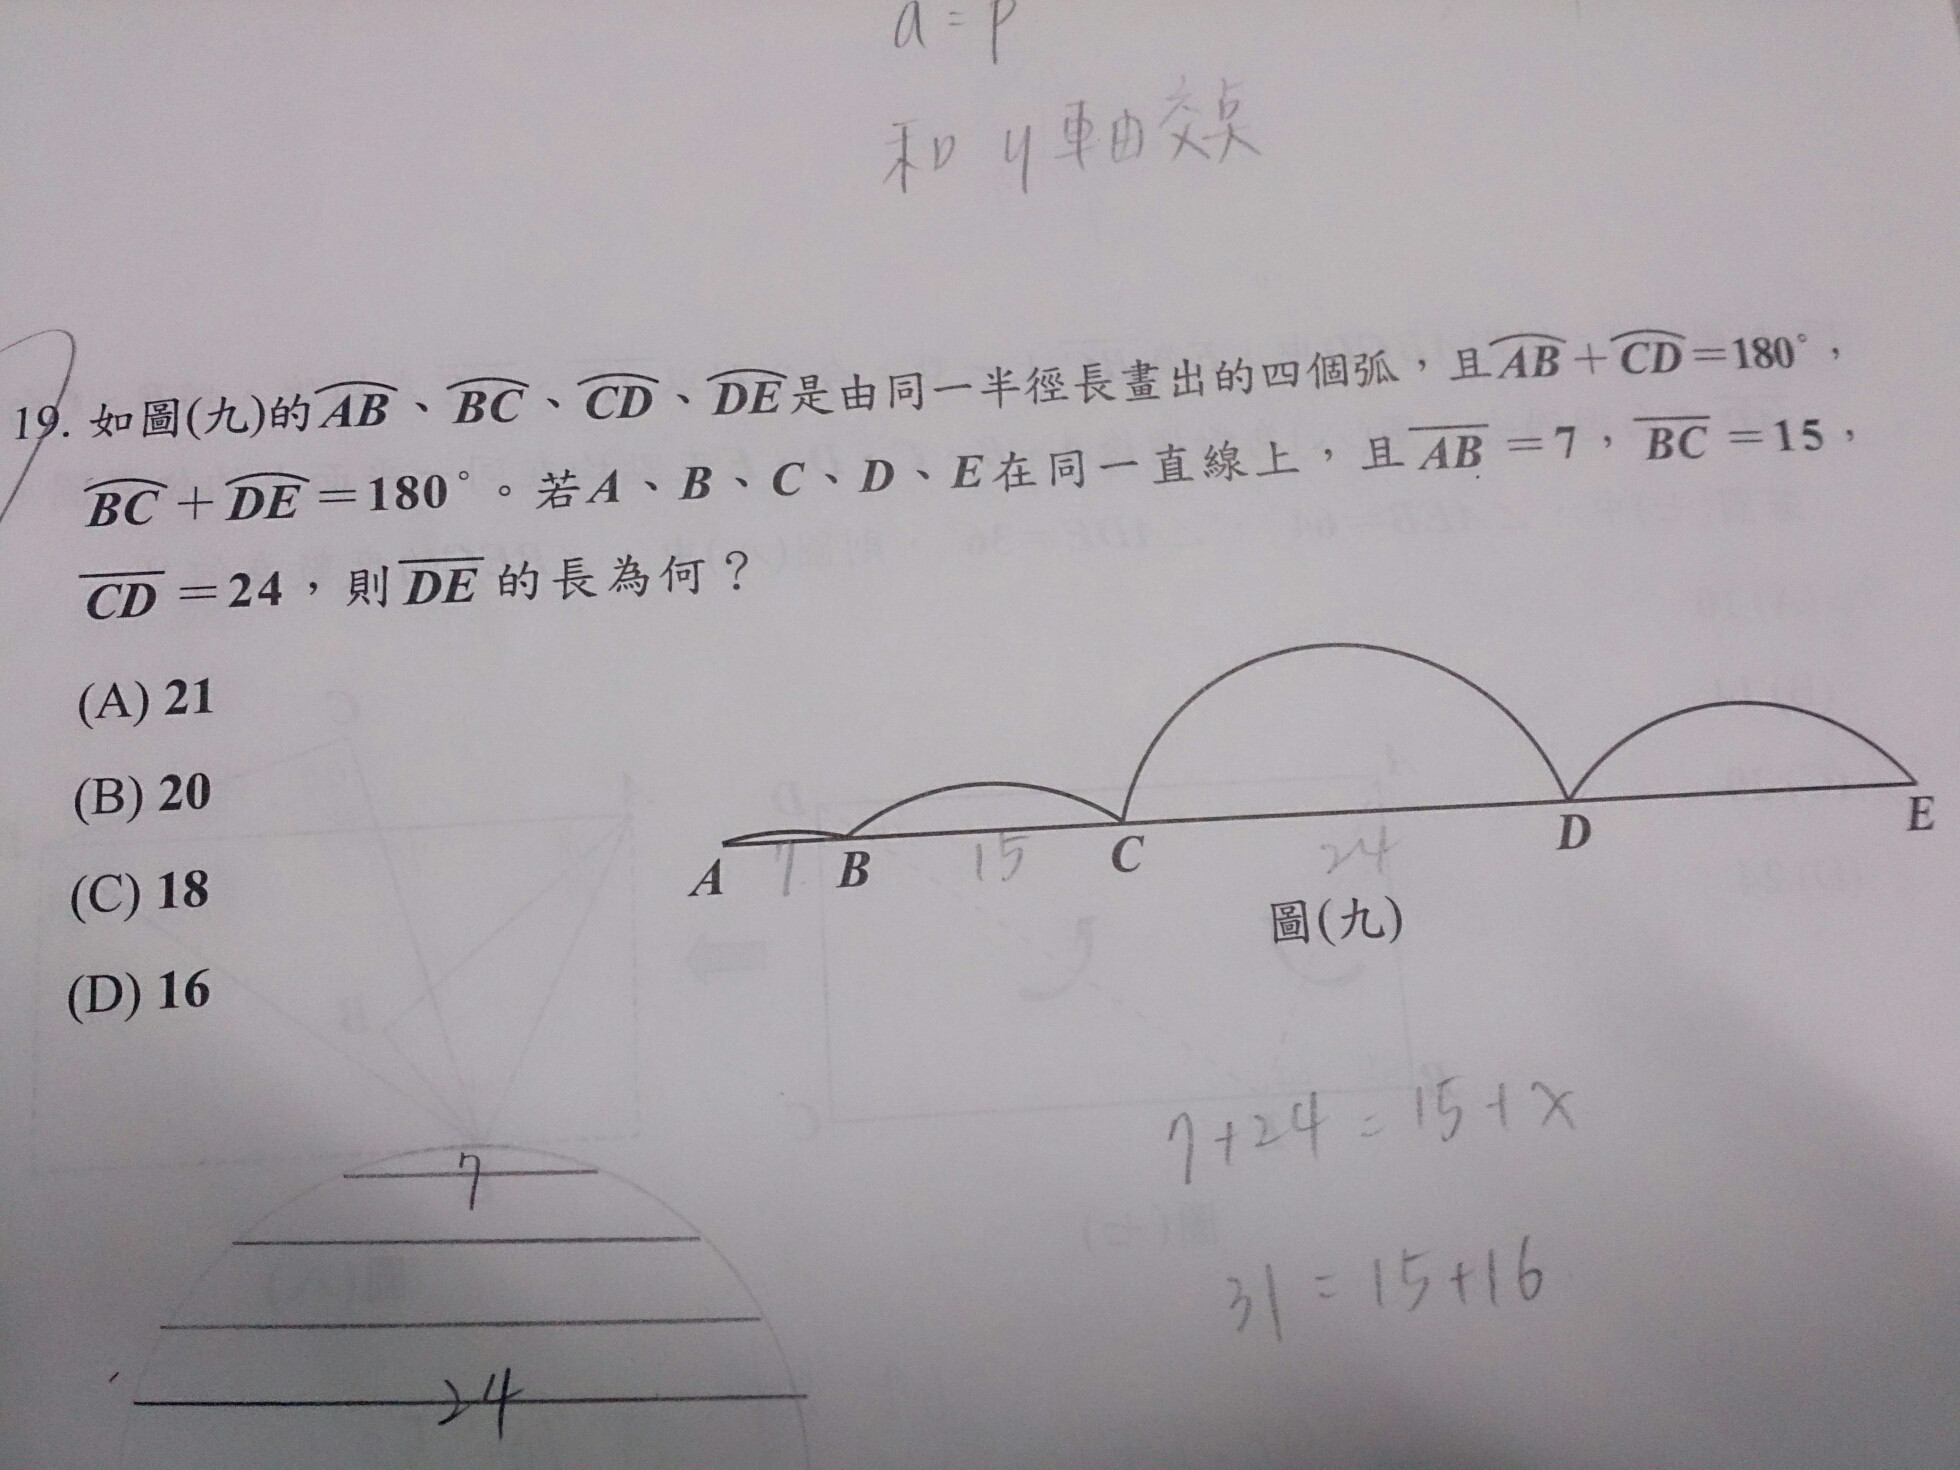 a=p
和 y 軸交点
19. 如圖(九)的AB、BC、CD、DE是由同一半徑長畫出的四個弧，且AB+CD=180°，
BC+DE=180°。若A、B、C、D、E在同一直線上，且AB=7，BC=15，
CD=24，則DE的長為何？
(A) 21
(B) 20
(C) 18
(D) 16
A 7 B 15 C 24 D E
圖(九)
7+24=15+x
31=15+16
7
24